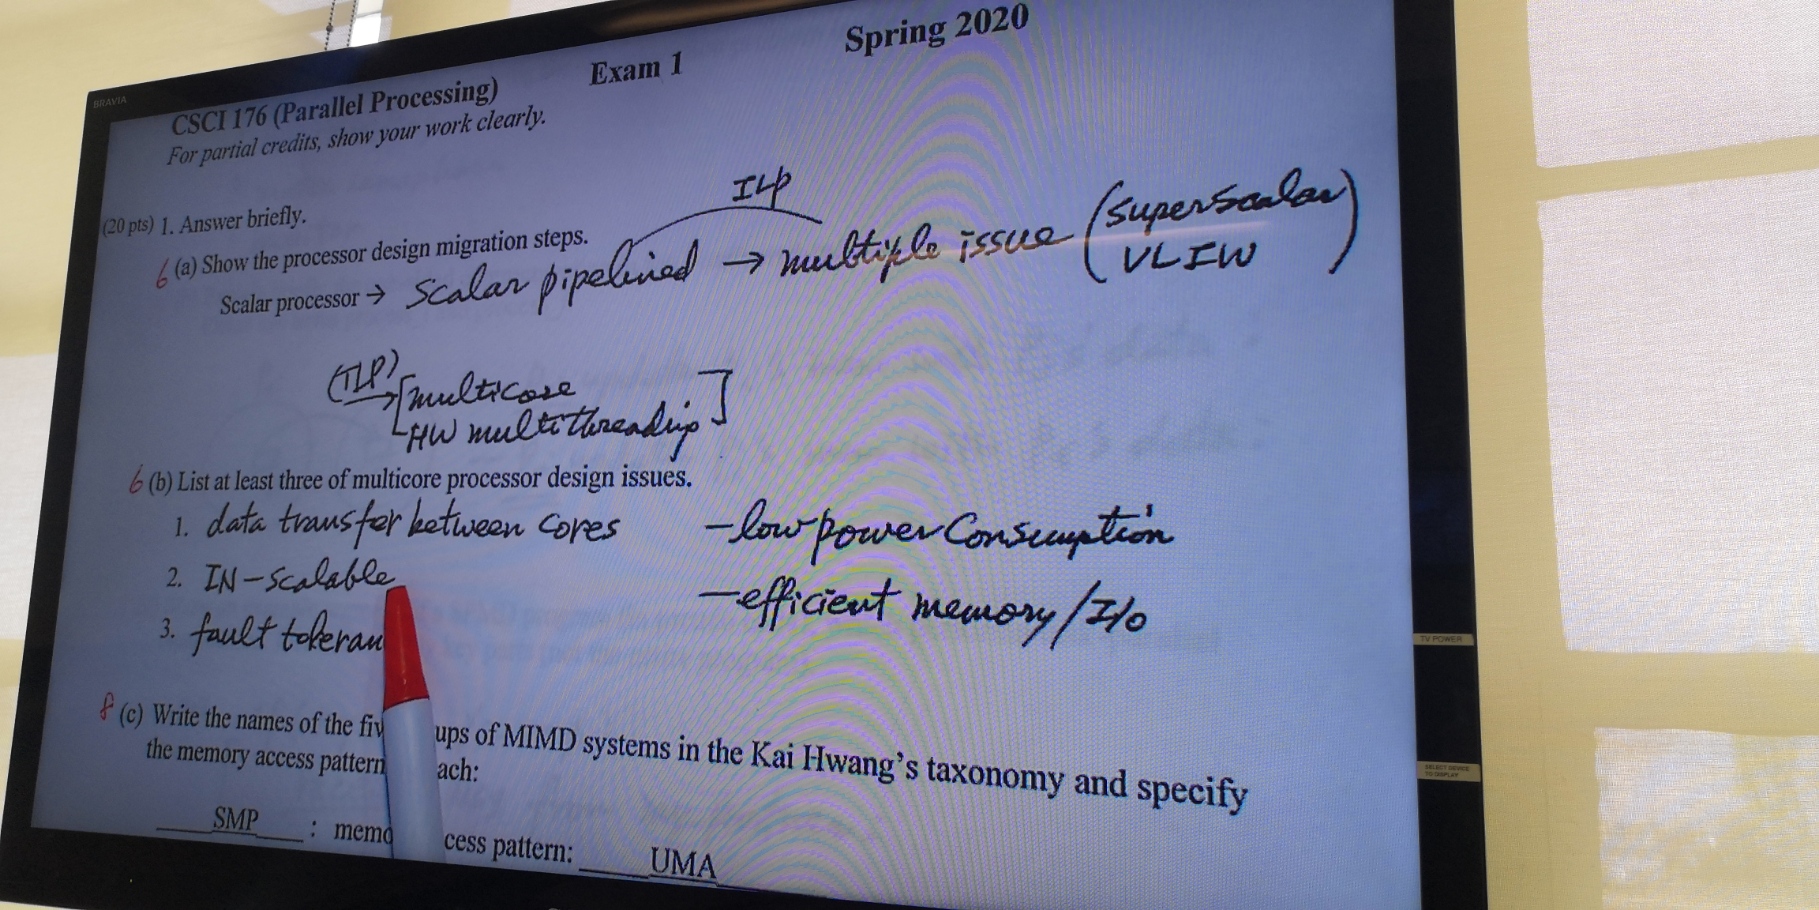 BRAVIA
CSCI 176 (Parallel Processing) Exam 1 Spring 2020
For partial credits, show your work clearly.
(20 pts) 1. Answer briefly.
ILP
6 (a) Show the processor design migration steps.
Scalar processor → Scalar pipelined → multiple issue (superscalar
VLIW)
(TLP) → [multicore
HW multithreading]
6 (b) List at least three of multicore processor design issues.
1. data transfer between cores - low power Consumption
2. IN-scalable - efficient memory/I/o
3. fault toleran
8 (c) Write the names of the fiv ups of MIMD systems in the Kai Hwang's taxonomy and specify
the memory access pattern ach:
SMP : memo cess pattern: UMA
TV POWER
SELECT DEVICE
TO DISPLAY